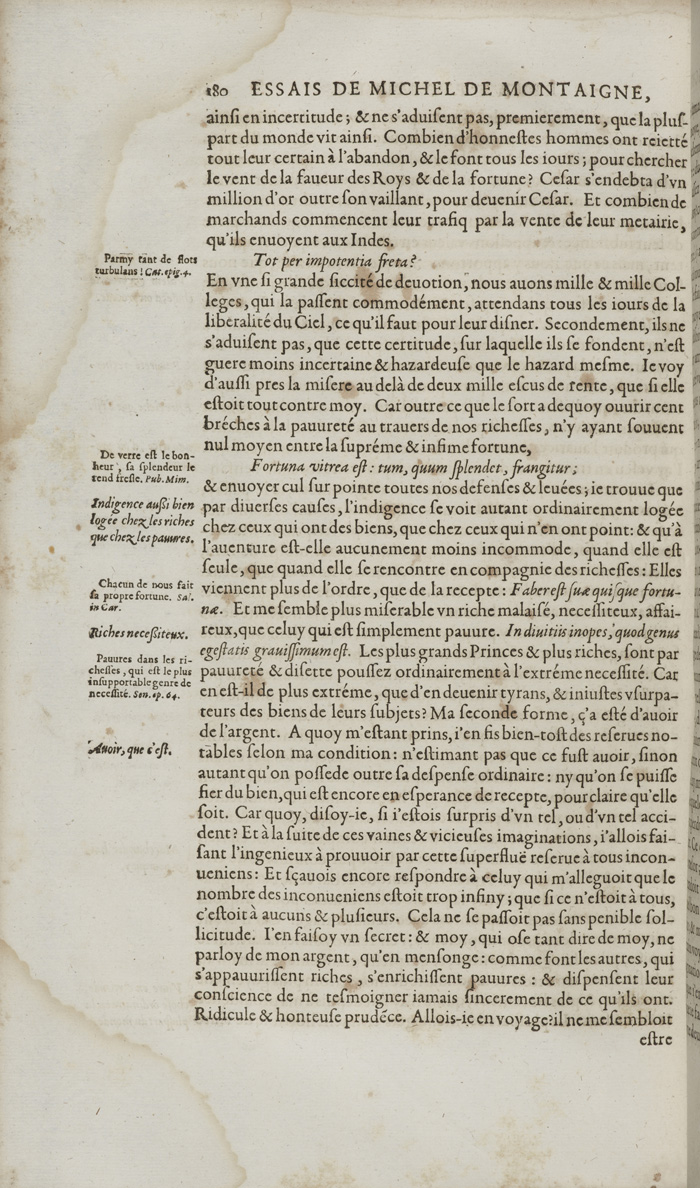 180 ESSAIS DE MICHEL DE MONTAIGNE,
ainſi en incertitude ; & ne s'aduiſent pas, premierement, que la pluſ-
part du monde vit ainſi. Combien d'honneſtes hommes ont reietté
tout leur certain à l'abandon, & le font tous les iours ; pour chercher
le vent de la faueur des Roys & de la fortune? Ceſar s'endebta d'vn
million d'or outre ſon vaillant, pour deuenir Ceſar. Et combien de
marchands commencent leur trafiq par la vente de leur metairie,
qu'ils enuoyent aux Indes.
Parmy tant de flots
turbulans ! Cat. epig. 4.
Tot per impotentia freta?
En vne ſi grande ſiccité de deuotion, nous auons mille & mille Col-
leges, qui la paſſent commodément, attendans tous les iours de la
liberalité du Ciel, ce qu'il faut pour leur diſner. Secondement, ils ne
s'aduiſent pas, que cette certitude, ſur laquelle ils ſe fondent, n'eſt
guere moins incertaine & hazardeuſe que le hazard meſme. Ie voy
d'auſſi pres la miſere au delà de deux mille eſcus de rente, que ſi elle
eſtoit tout contre moy. Car outre ce que le ſort a dequoy ouurir cent
bréches à la pauureté au trauers de nos richeſſes, n'y ayant ſouuent
nul moyen entre la ſupréme & infime fortune,
De verre eſt le bon-
heur, ſa ſplendeur le
rend freſle. Pub. Mim.
Fortuna vitrea eſt : tum, quum ſplendet, frangitur ;
& enuoyer cul ſur pointe toutes nos defenſes & leuées ; ie trouue que
Indigence auſſi bien
logée chez les riches
que chez les pauures.
par diuerſes cauſes, l'indigence ſe voit autant ordinairement logée
chez ceux qui ont des biens, que chez ceux qui n'en ont point : & qu'à
l'auenture eſt-elle aucunement moins incommode, quand elle eſt
ſeule, que quand elle ſe rencontre en compagnie des richeſſes : Elles
Chacun de nous fait
ſa propre fortune. Sal.
in Cæſ.
viennent plus de l'ordre, que de la recepte : Faber eſt ſuæ quiſque fortu-
næ. Et me ſemble plus miſerable vn riche malaiſé, neceſſiteux, affai-
Riches neceſſiteux.
reux, que celuy qui eſt ſimplement pauure. In diuitiis inopes, quod genus
Pauures dans les ri-
cheſſes, qui eſt le plus
inſupportable genre de
neceſſité. Sen. ep. 64.
egeſtatis grauiſſimum eſt. Les plus grands Princes & plus riches, ſont par
pauureté & diſette pouſſez ordinairement à l'extréme neceſſité. Car
en eſt-il de plus extréme, que d'en deuenir tyrans, & iniuſtes vſurpa-
teurs des biens de leurs ſubjets? Ma ſeconde forme, ç'a eſté d'auoir
de l'argent. A quoy m'eſtant prins, i'en fis bien-toſt des reſerues no-
Auoir, que c'eſt.
tables ſelon ma condition : n'eſtimant pas que ce fuſt auoir, ſinon
autant qu'on poſſede outre ſa deſpenſe ordinaire : ny qu'on ſe puiſſe
fier du bien, qui eſt encore en eſperance de recepte, pour claire qu'elle
ſoit. Car quoy, diſoy-ie, ſi i'eſtois ſurpris d'vn tel, ou d'vn tel acci-
dent? Et à la ſuite de ces vaines & vicieuſes imaginations, i'allois fai-
ſant l'ingenieux à prouuoir par cette ſuperfluë reſerue à tous incon-
ueniens : Et ſçauois encore reſpondre à celuy qui m'alleguoit que le
nombre des inconueniens eſtoit trop infiny ; que ſi ce n'eſtoit à tous,
c'eſtoit à aucuns & pluſieurs. Cela ne ſe paſſoit pas ſans penible ſol-
licitude. I'en faiſoy vn ſecret : & moy, qui oſe tant dire de moy, ne
parloy de mon argent, qu'en menſonge : comme font les autres, qui
s'appauuriſſent riches, s'enrichiſſent pauures : & diſpenſent leur
conſcience de ne teſmoigner iamais ſincerement de ce qu'ils ont.
Ridicule & honteuſe prudéce. Allois-ie en voyage? il ne me ſembloit
eſtre